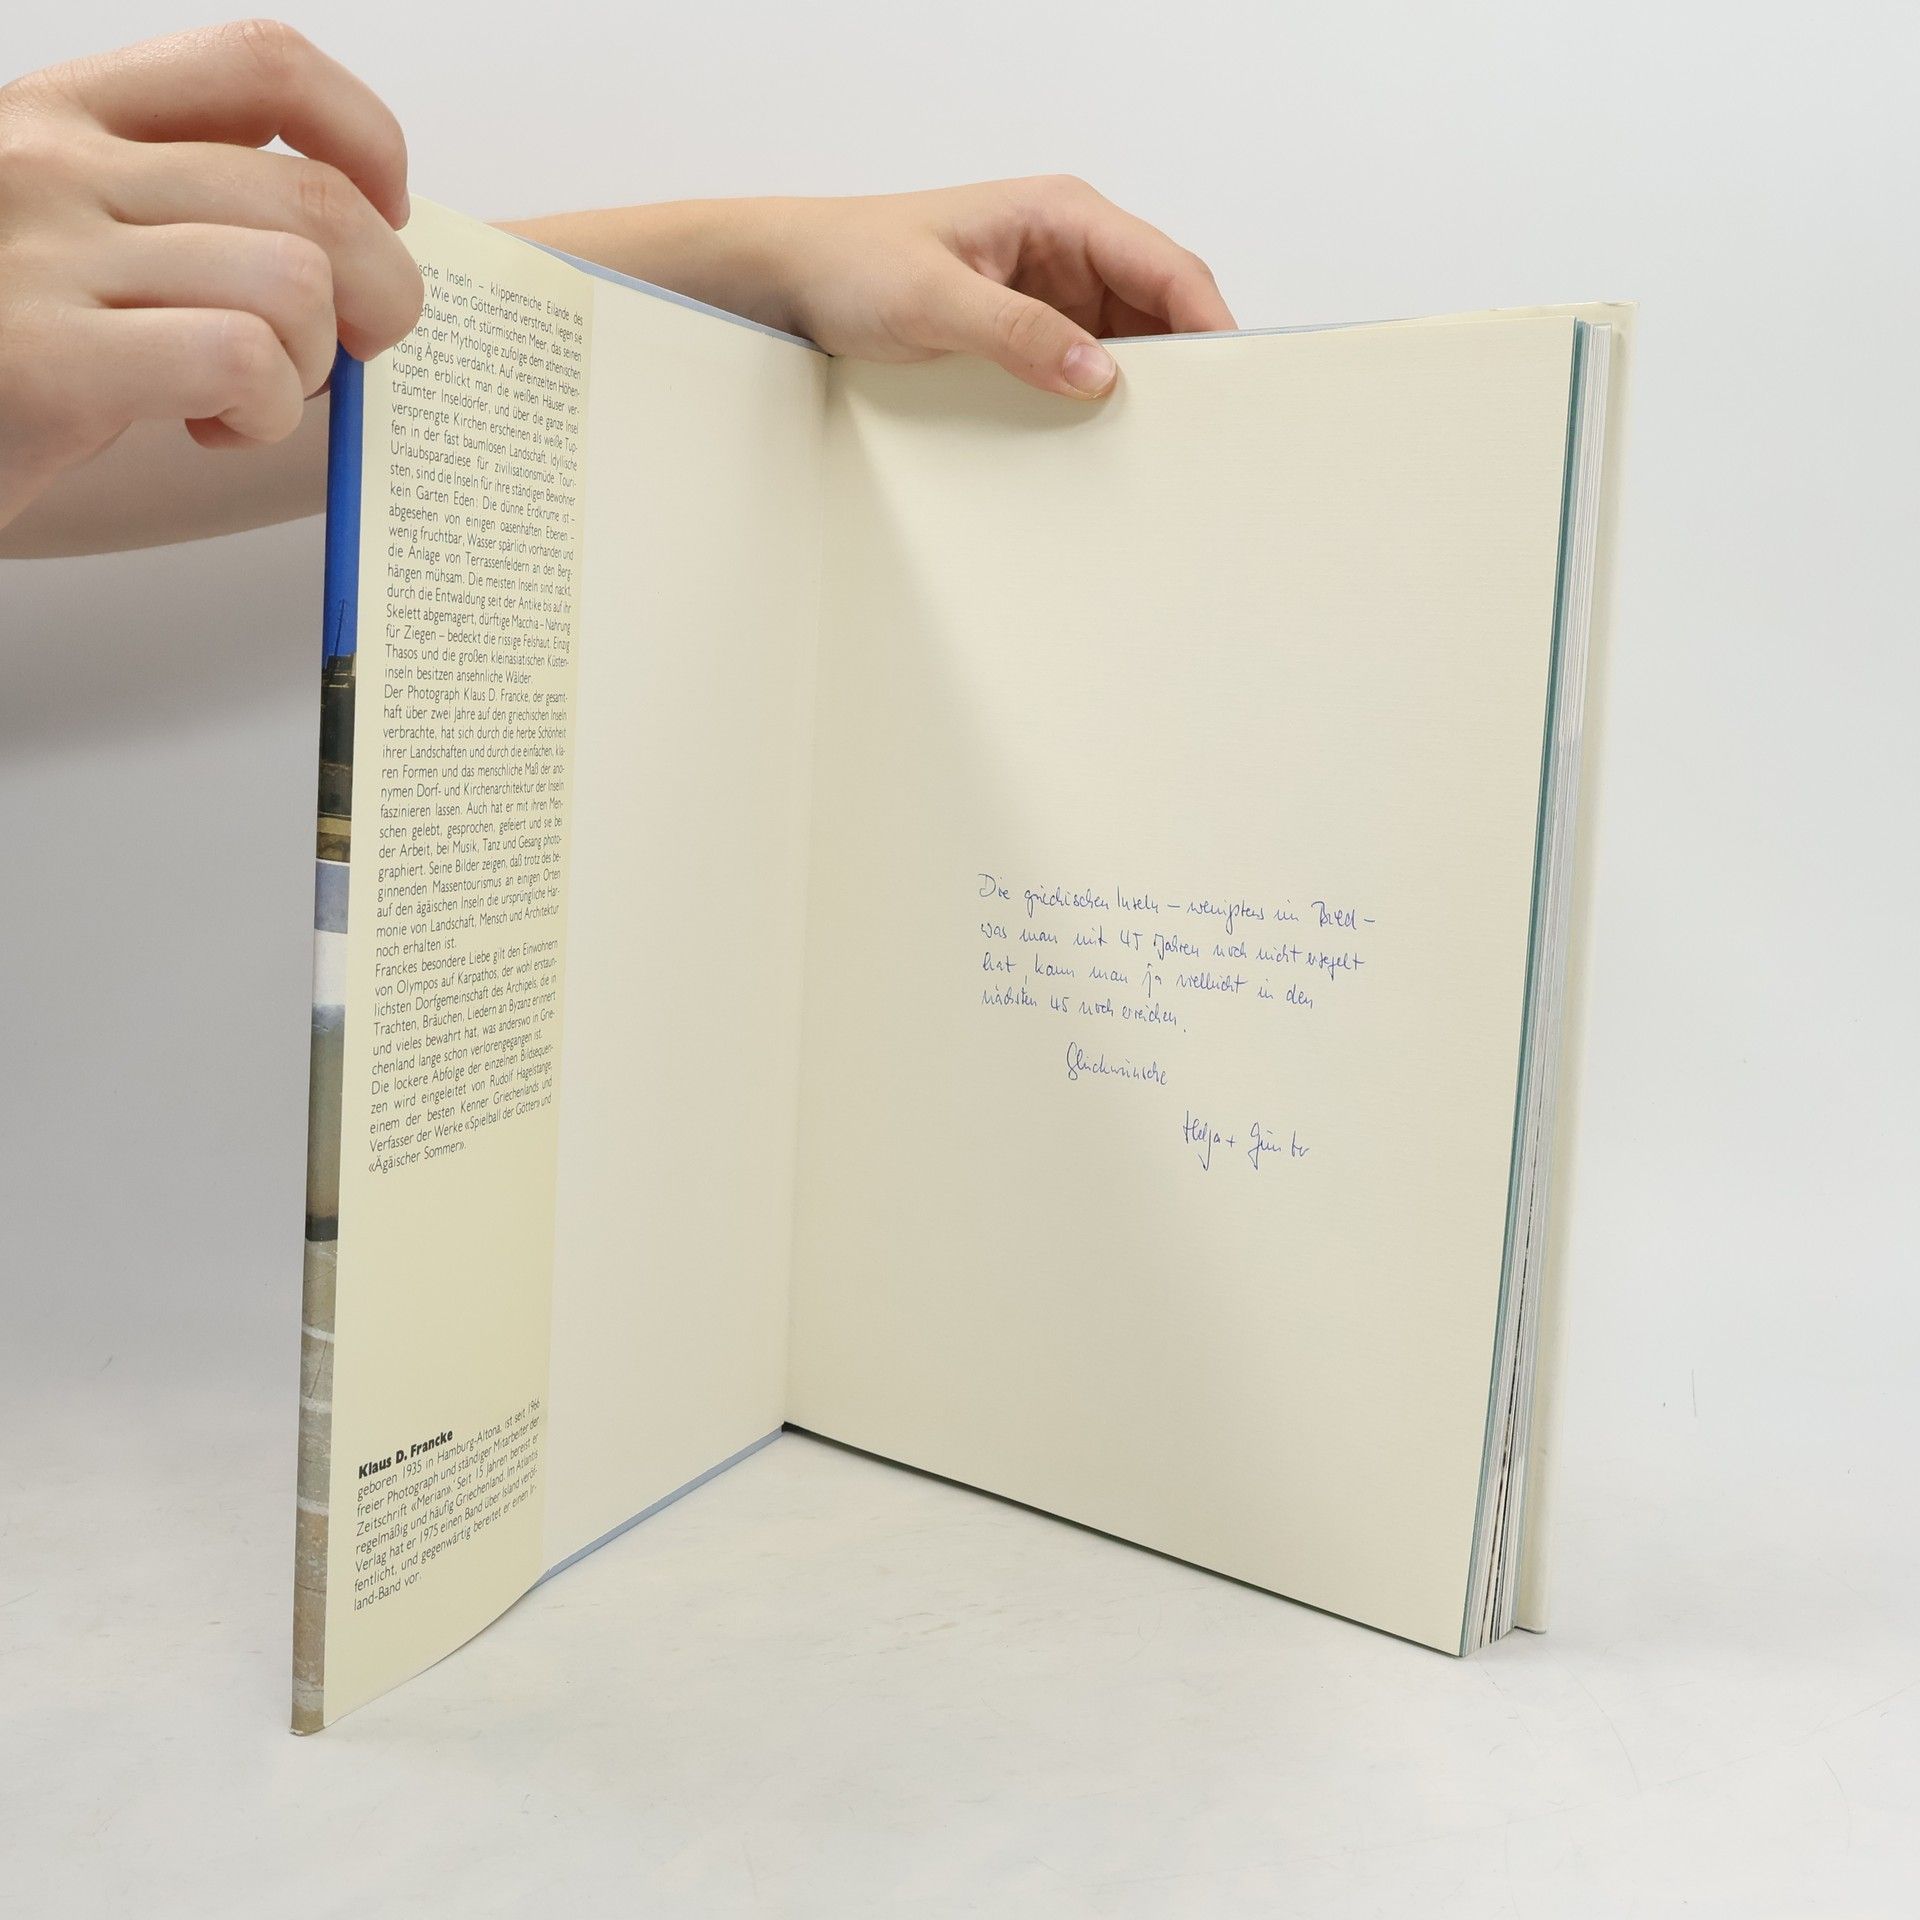 ische Inseln – klippenreiche Eilande des
. Wie von Götterhand verstreut, liegen sie
efblauen, oft stürmischen Meer, das seinen
men der Mythologie zufolge dem athenischen
König Ägeus verdankt. Auf vereinzelten Höhen-
kuppen erblickt man die weißen Häuser ver-
träumter Inseldörfer, und über die ganze Insel
versprengte Kirchen erscheinen als weiße Tup-
fen in der fast baumlosen Landschaft. Idyllische
Urlaubsparadiese für zivilisationsmüde Touri-
sten, sind die Inseln für ihre ständigen Bewohner
kein Garten Eden: Die dünne Erdkrume ist –
abgesehen von einigen oasenhaften Ebenen –
wenig fruchtbar, Wasser spärlich vorhanden und
die Anlage von Terrassenfeldern an den Berg-
hängen mühsam. Die meisten Inseln sind nackt,
durch die Entwaldung seit der Antike bis auf ihr
Skelett abgemagert, dürftige Macchia – Nahrung
für Ziegen – bedeckt die rissige Felshaut. Einzig
Thasos und die großen kleinasiatischen Küsten-
inseln besitzen ansehnliche Wälder.
Der Photograph Klaus D. Francke, der gesamt-
haft über zwei Jahre auf den griechischen Inseln
verbrachte, hat sich durch die herbe Schönheit
ihrer Landschaften und durch die einfachen, kla-
ren Formen und das menschliche Maß der ano-
nymen Dorf- und Kirchenarchitektur der Inseln
faszinieren lassen. Auch hat er mit ihren Men-
schen gelebt, gesprochen, gefeiert und sie bei
der Arbeit, bei Musik, Tanz und Gesang photo-
graphiert. Seine Bilder zeigen, daß trotz des be-
ginnenden Massentourismus an einigen Orten
auf den ägäischen Inseln die ursprüngliche Har-
monie von Landschaft, Mensch und Architektur
noch erhalten ist.
Franckes besondere Liebe gilt den Einwohnern
von Olympos auf Karpathos, der wohl erstaun-
lichsten Dorfgemeinschaft des Archipels, die in
Trachten, Bräuchen, Liedern an Byzanz erinnert
und vieles bewahrt hat, was anderswo in Grie-
chenland lange schon verlorengegangen ist.
Die lockere Abfolge der einzelnen Bildsequen-
zen wird eingeleitet von Rudolf Hagelstange,
einem der besten Kenner Griechenlands und
Verfasser der Werke «Spielball der Götter» und
«Ägäischer Sommer».
Klaus D. Francke
geboren 1935 in Hamburg-Altona, ist seit 1966
freier Photograph und ständiger Mitarbeiter der
Zeitschrift «Merian». Seit 15 Jahren bereist er
regelmäßig und häufig Griechenland. Im Atlantis
Verlag hat er 1975 einen Band über Island veröf-
fentlicht, und gegenwärtig bereitet er einen Ir-
land-Band vor.
Die griechischen Inseln – wenigstens im Bild –
was man mit 45 Jahren noch nicht ersegelt
hat, kann man ja vielleicht in den
nächsten 45 noch erreichen.
Glückwünsche
Helga + Günter